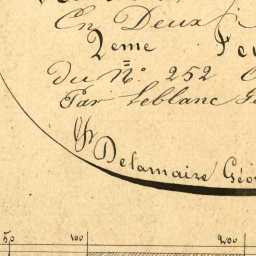 En Deux
2eme Fe
du N° 252
Par Leblanc Gé
Delamaire Géo
50 100 200